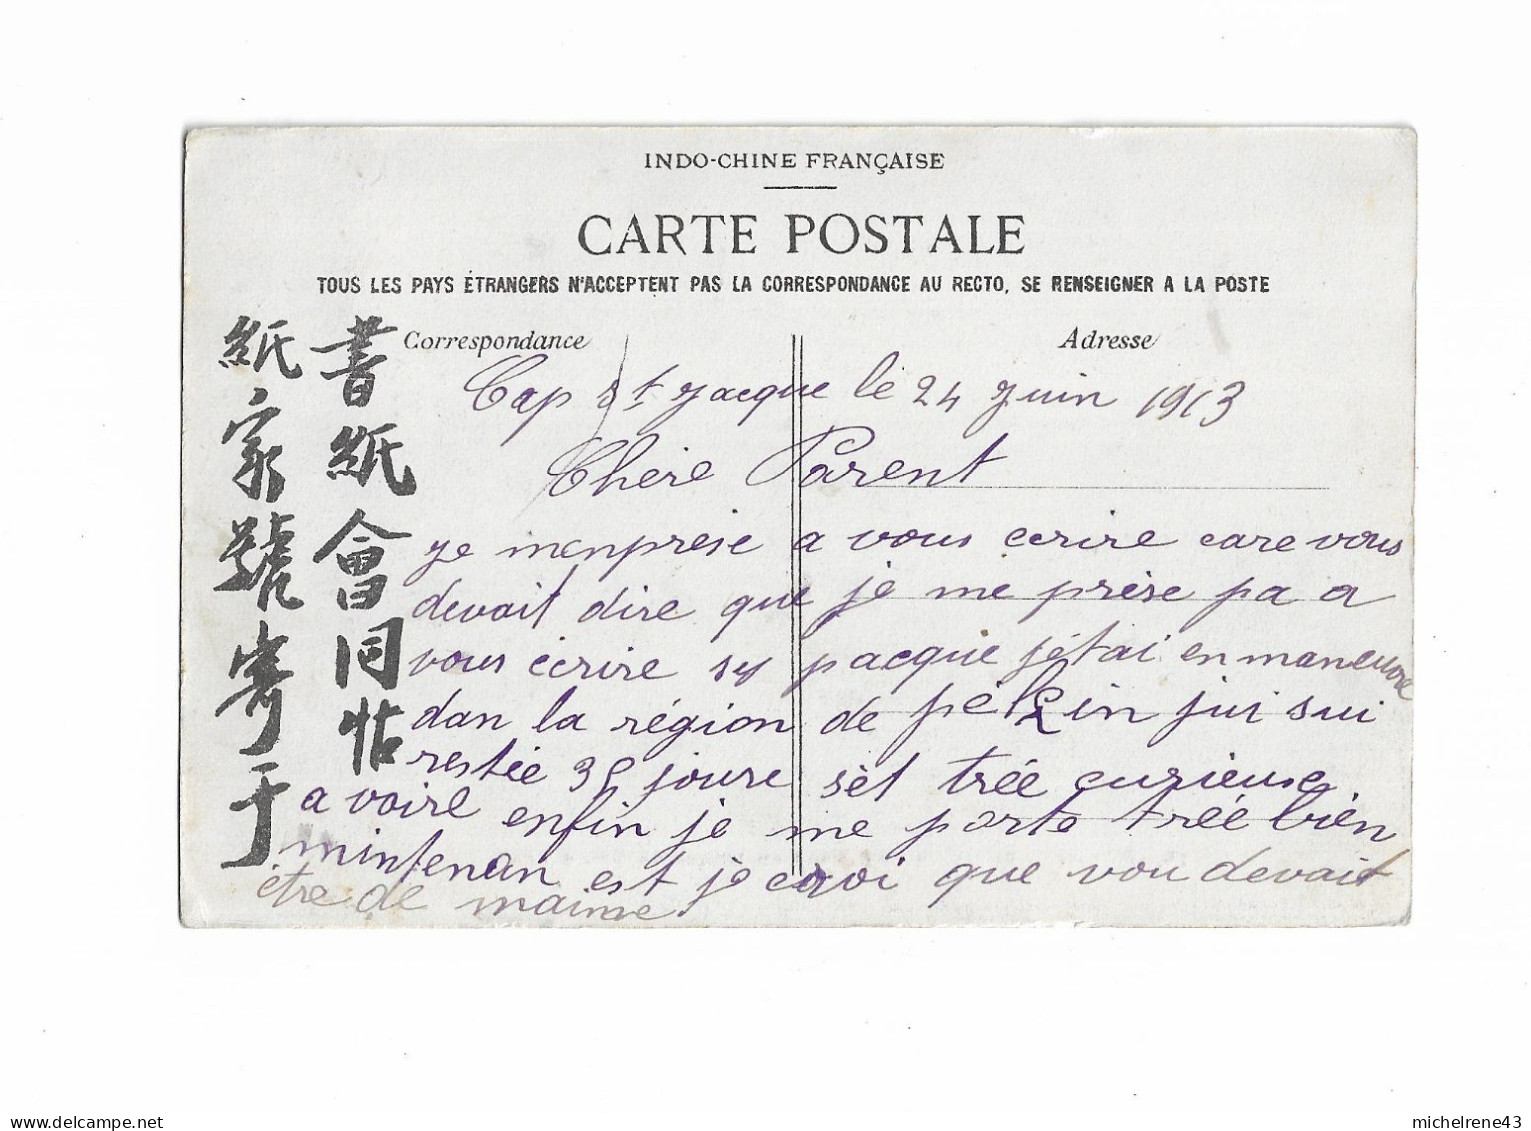 INDO-CHINE FRANÇAISE
CARTE POSTALE
TOUS LES PAYS ÉTRANGERS N'ACCEPTENT PAS LA CORRESPONDANCE AU RECTO, SE RENSEIGNER A LA POSTE
Correspondance
Adresse
書紙會同帖
紙家號寄于
Cap St Jacque le 24 Juin 1913
Chère Parent
Je menprese a vous ecrire care vous
devait dire que je me prèse pa a
vous écrire sy pacque jétai en maneuvre
dan la région de pékin jui sui
restée 35 joure sèt trée curieuse
a voire enfin je me porte trée bien
mintenan est je croi que vou devait
être de maime
michelrene43